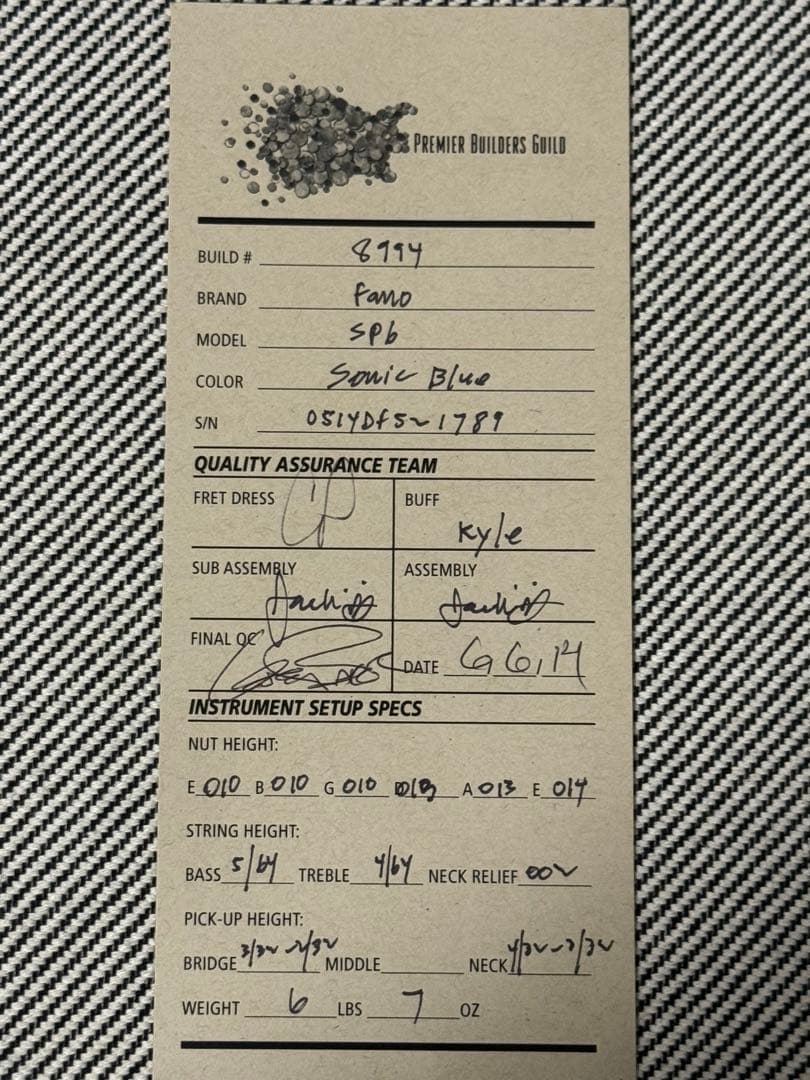 PREMIER BUILDERS GUILD
BUILD # 8994
BRAND Fano
MODEL SP6
COLOR Sonic Blue
S/N
QUALITY ASSURANCE TEAM
FRET DRESS BUFF
Kyle
SUB ASSEMBLY ASSEMBLY
FINAL QC DATE 6, 6, 14
INSTRUMENT SETUP SPECS
NUT HEIGHT:
E 010 B 010 G 010 D 013 A 013 E 014
STRING HEIGHT:
BASS 5/64 TREBLE 4/64 NECK RELIEF 002
PICK-UP HEIGHT:
BRIDGE 3/32 - 2/32 MIDDLE NECK 4/32 - 3/32
WEIGHT 6 LBS 7 OZ